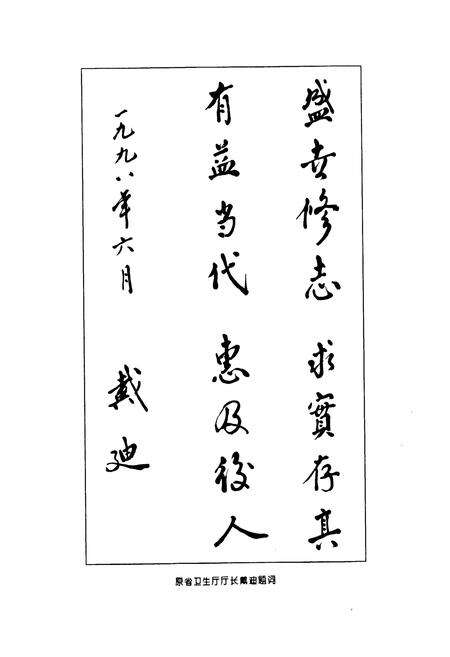 盛世修志 求實存真
有益当代 惠及後人
一九九八年六月 戴迪
原省卫生厅厅长戴迪题词